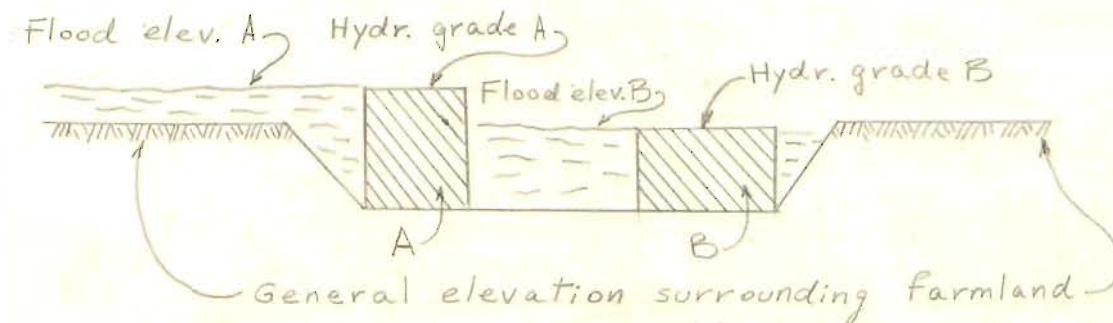 Flood elev. A
Hydr. grade A
Flood elev. B
Hydr. grade B
A
B
General elevation surrounding farmland